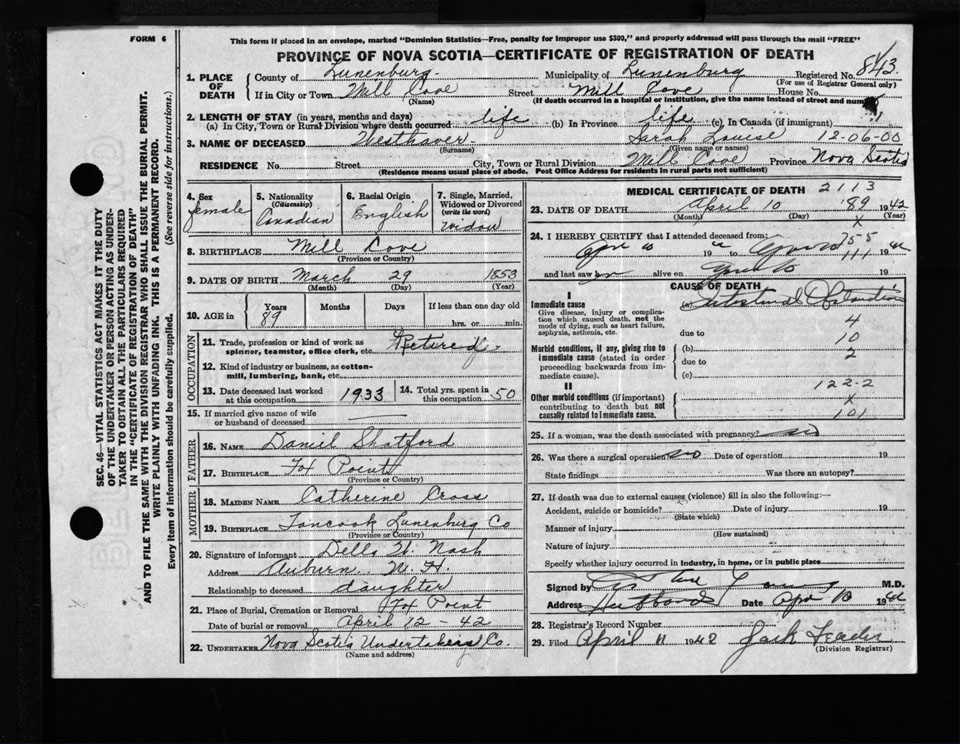 FORM 6
This form if placed in an envelope, marked "Dominion Statistics—Free, penalty for improper use $300," and properly addressed will pass through the mail "FREE"
PROVINCE OF NOVA SCOTIA—CERTIFICATE OF REGISTRATION OF DEATH
SEC. 46—VITAL STATISTICS ACT MAKES IT THE DUTY
OF THE UNDERTAKER OR PERSON ACTING AS UNDER-
TAKER TO OBTAIN ALL THE PARTICULARS REQUIRED
IN THE "CERTIFICATE OF REGISTRATION OF DEATH"
AND TO FILE THE SAME WITH THE DIVISION REGISTRAR WHO SHALL ISSUE THE BURIAL PERMIT.
WRITE PLAINLY WITH UNFADING INK. THIS IS A PERMANENT RECORD.
Every item of information should be carefully supplied. (See reverse side for Instructions.)
1. PLACE OF DEATH
County of Lunenburg Municipality of Lunenburg Registered No. 843
(For use of Registrar General only)
If in City or Town Mill Cove Street Mill Cove House No.
(Name) (If death occurred in a hospital or institution, give the name instead of street and number)
2. LENGTH OF STAY (in years, months and days)
(a) In City, Town or Rural Division where death occurred life (b) In Province life (c) In Canada (if immigrant)
3. NAME OF DECEASED Westhaver Sarah Louise 12-06-00
(Surname) (Given name or names)
RESIDENCE No. Street City, Town or Rural Division Mill Cove Province Nova Scotia
(Residence means usual place of abode. Post Office Address for residents in rural parts not sufficient)
4. Sex female
5. Nationality (Citizenship) Canadian
6. Racial Origin English
7. Single, Married, Widowed or Divorced (write the word) widow
8. BIRTHPLACE Mill Cove
(Province or Country)
9. DATE OF BIRTH March 29 1853
(Month) (Day) (Year)
10. AGE in Years 89 Months Days If less than one day old
hrs. or min.
OCCUPATION
11. Trade, profession or kind of work as spinner, teamster, office clerk, etc. Retired
12. Kind of industry or business, as cotton-mill, lumbering, bank, etc.
13. Date deceased last worked at this occupation 1933
14. Total yrs. spent in this occupation 50
15. If married give name of wife or husband of deceased
FATHER
16. NAME Daniel Shatford
17. BIRTHPLACE Fox Point
(Province or Country)
MOTHER
18. MAIDEN NAME Catherine Cross
19. BIRTHPLACE Tancook Lunenburg Co
(Province or Country)
20. Signature of informant Della W. Nash
Address Auburn N. H.
Relationship to deceased daughter
21. Place of Burial, Cremation or Removal Fox Point
Date of burial or removal April 12 - 42
22. UNDERTAKER Nova Scotia Undertaking Co.
(Name and address)
MEDICAL CERTIFICATE OF DEATH 2113
23. DATE OF DEATH April 10 '89 1942
(Month) (Day) (Year)
x
24. I HEREBY CERTIFY that I attended deceased from:
755
19 to 111 19
and last saw alive on 19
CAUSE OF DEATH
I
Immediate cause
Give disease, injury or complication which caused death, not the mode of dying, such as heart failure, asphyxia, asthenia, etc.
4
due to
10
Morbid conditions, if any, giving rise to immediate cause (stated in order proceeding backwards from immediate cause).
(b)
2
due to
(c)
122-2
II
Other morbid conditions (if important) contributing to death but not causally related to immediate cause.
x
101
25. If a woman, was the death associated with pregnancy? no
26. Was there a surgical operation no Date of operation 19
State findings Was there an autopsy?
27. If death was due to external causes (violence) fill in also the following:—
Accident, suicide or homicide? Date of injury 19
(State which)
Manner of injury
(How sustained)
Nature of injury
Specify whether injury occurred in industry, in home, or in public place
Signed by M.D.
Address Hubbards Date Apr 10 1942
28. Registrar's Record Number
29. Filed April 11 1942 Jack
(Division Registrar)